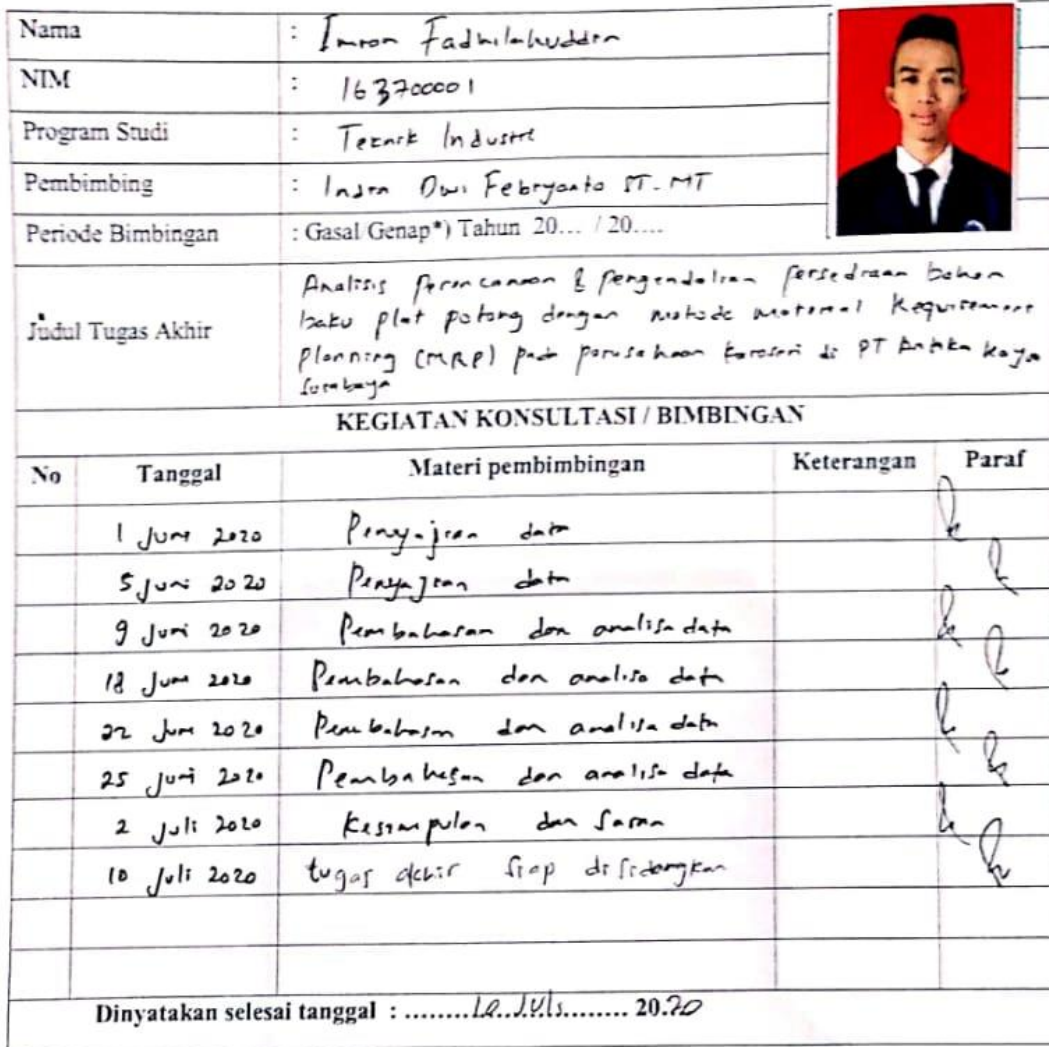 Nama : Imron Fadhilahuddin
NIM : 163700001
Program Studi : Teknik Industri
Pembimbing : Indra Dwi Febryanto ST. MT
Periode Bimbingan : Gasal/Genap*) Tahun 20... / 20....
Judul Tugas Akhir
Analisis Perencanaan & Pengendalian Persediaan bahan
baku plat potong dengan metode material Requirement
Planning (MRP) pada perusahaan karoseri di PT Antika Raya
Surabaya
KEGIATAN KONSULTASI / BIMBINGAN
No Tanggal Materi pembimbingan Keterangan Paraf
1 Juni 2020 Penyajian data
5 Juni 2020 Penyajian data
9 Juni 2020 Pembahasan dan analisa data
18 Juni 2020 Pembahasan dan analisa data
22 Juni 2020 Pembahasan dan analisa data
25 Juni 2020 Pembahasan dan analisa data
2 Juli 2020 Kesimpulan dan Saran
10 Juli 2020 tugas akhir siap di sidangkan
Dinyatakan selesai tanggal : ........10 Juli........ 20.20